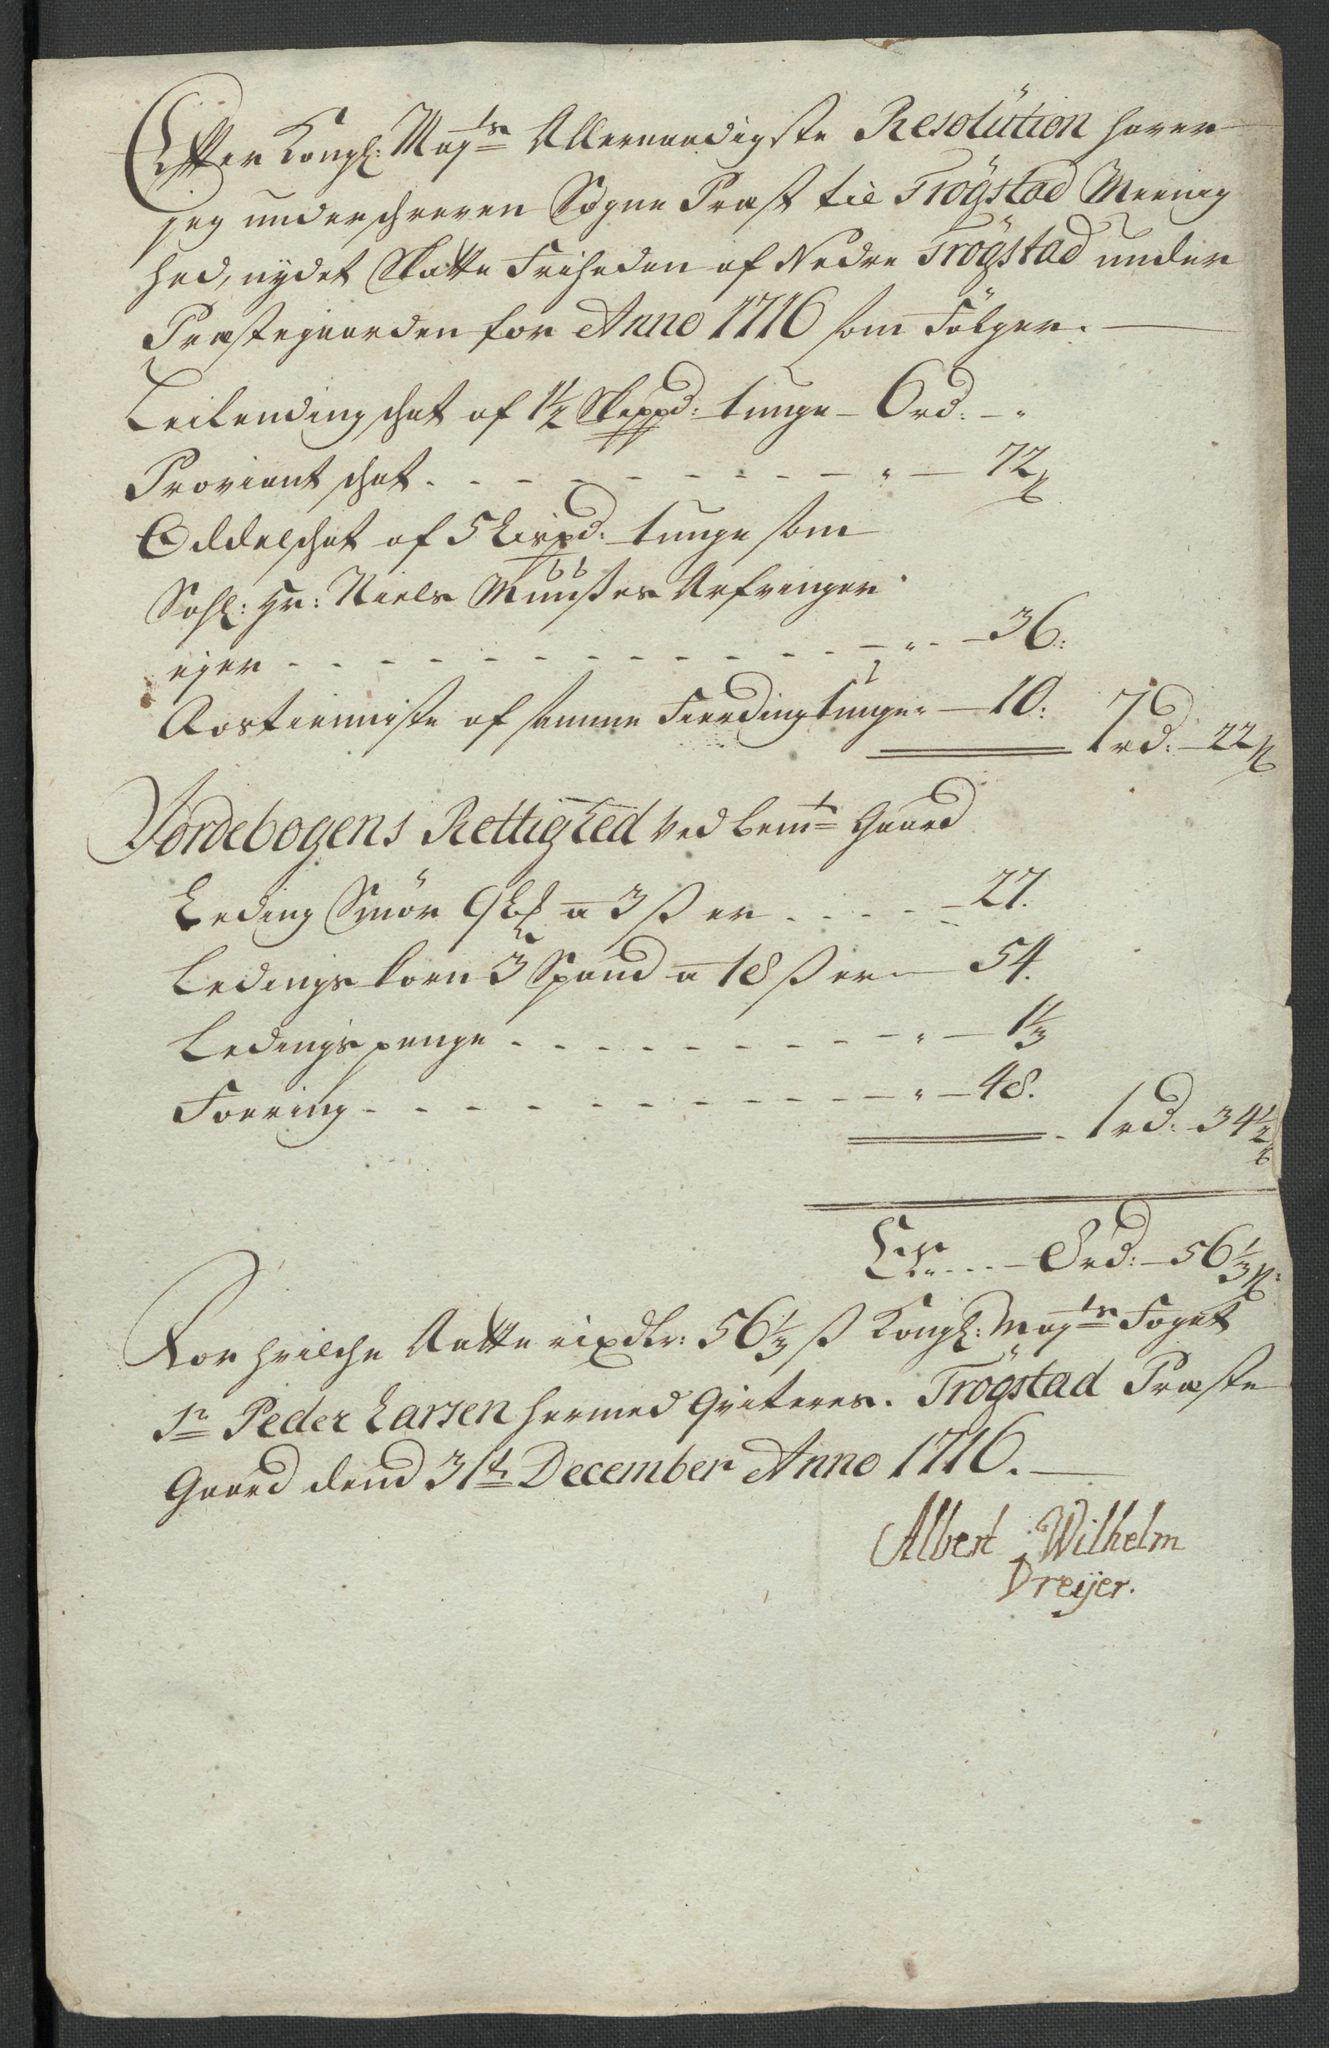 Efter Kongl: Mayts Allernaadigste Resolution haver
jeg underschreven Sogne Præst til Trögstad Meenig
hed, nydet Skatte Friheden af Nedre Trögstad under
Præstegaarden for Anno 1716 som Fölger.
Leilendingschat af 1½ Skippd: tunge - 6 rd: - "
Proviant schat - " - 72 ß
Oddelschat af 5 Lispd: tunge som
Sahl: Hr: Niels Munsses Arfvinger
ejer - " - 36:
Rostienniste af samme Fierding tunge " - 10: 7 rd: - 22 ß
Jordebogens Rettighed ved bemte Gaard
Leding Smör 9 a 3 ß er - 27.
Ledings korn 3 Spand a 18 ß er - 54.
Ledings penge - " - 1⅓
Foering - " - 48. 1 rd: 34½ ß
Er - 8 rd: - 56⅓ ß
For hvilche Aatte rixdlr: 56⅓ ß Kongl: Mayts Foget
Sr Peder Larsen hermed Qviteres. Trögstad Præste
Gaard dend 31te December Anno 1716.
Albert Wilhelm
Dreijer.